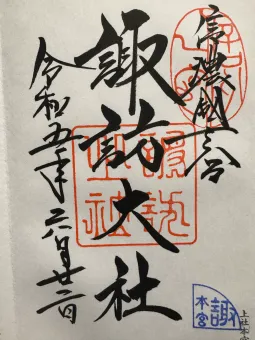 信濃國一之宮
諏訪大社
令和五年六月廿二日
諏訪大社
諏
本宮
上社本宮